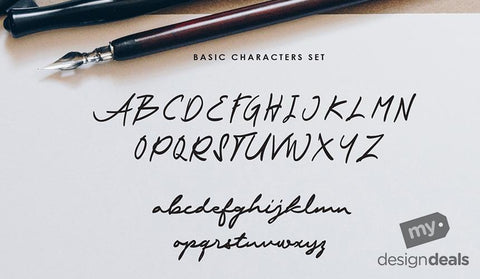 BASIC CHARACTERS SET
ABCDEFGHIJKLMN
OPQRSTUVWXYZ
abcdefghijklmn
opqrstuvwxyz
my
designdeals